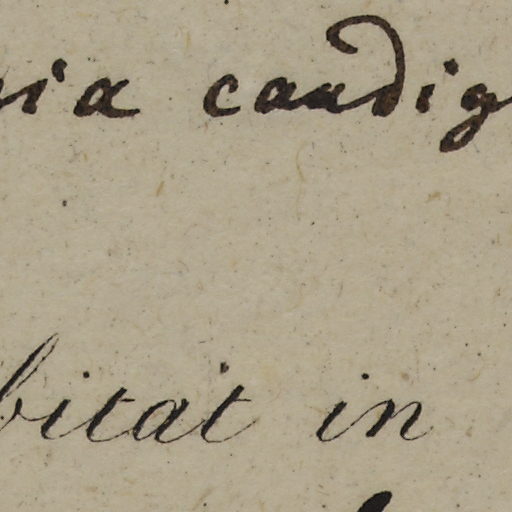 ria caudig
bitat in